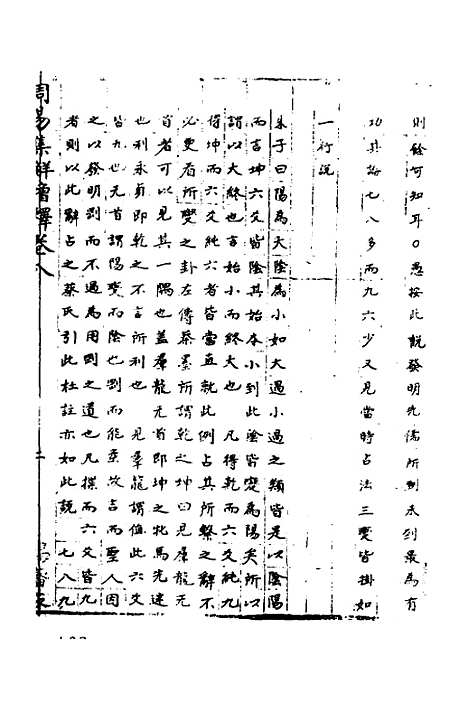 則餘可知耳○愚按此説發明先儒所到未到最為有
功其論七八多而九六少又見當時占法三變皆掛如
一行説
朱子曰陽為大陰為小如大過小過之類皆是以陰陽
而言坤六爻皆陰其始本小到此陰皆變為陽矣所以
謂以大終也言始小而終大也 凡得乾而六爻純九
得坤而六爻純六者皆當直就此例占其所繫之辭不
必更看所變之卦左傳蔡墨所謂乾之坤曰見羣龍无
首者可以見其一隅也蓋羣龍无首即坤之牝馬先迷
也利永貞即乾之不言所利也 見羣龍謂值此六爻
皆九也无首謂陽變而陰也剛而能柔故吉而聖人因
之以發明剛而不過為用剛之道也凡揲而六爻皆九
者則以此辭占之蔡氏引此杜註亦如此説 七八九
周易集解增釋卷八 二